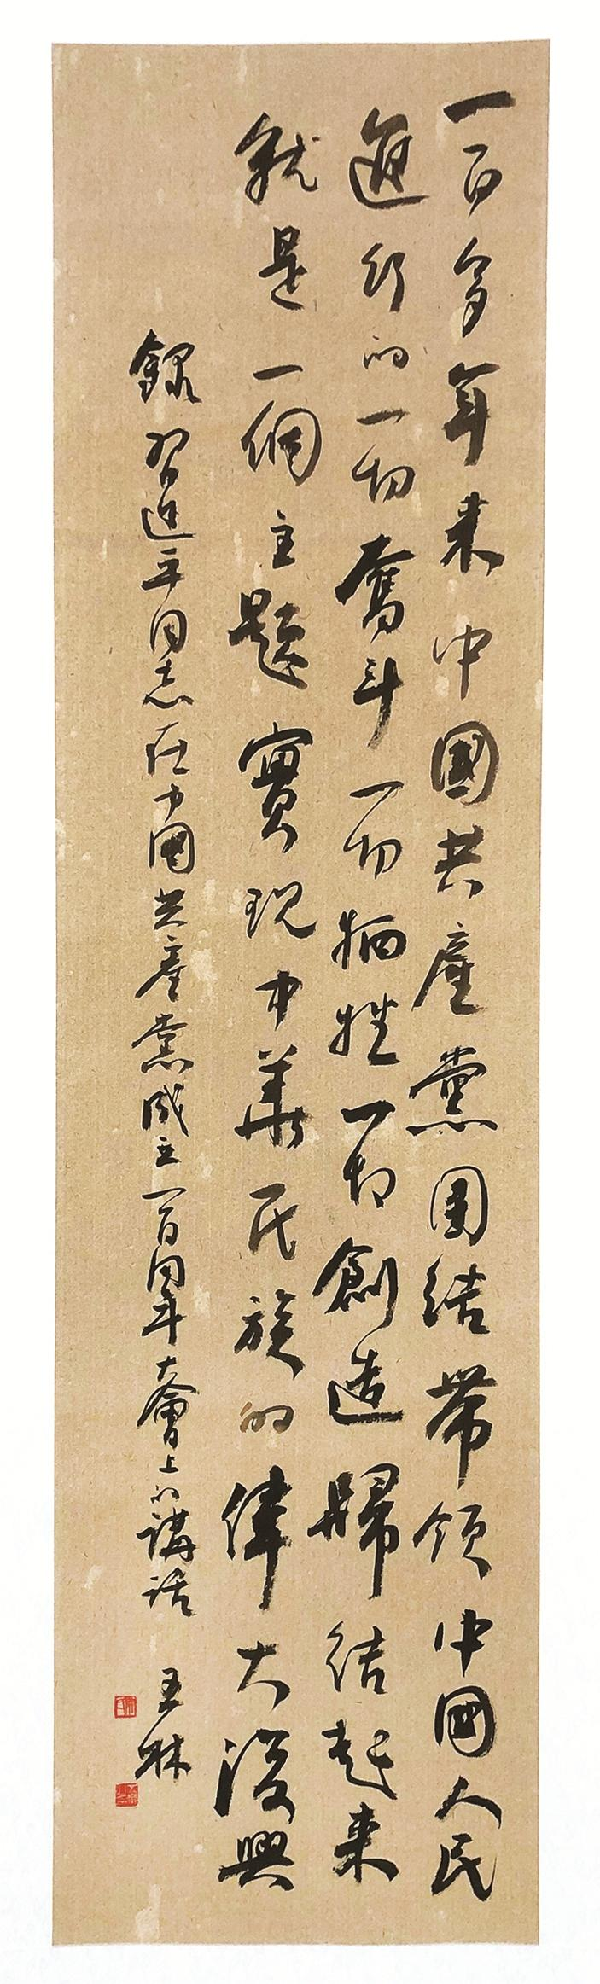 一百多年来中國共產黨團结带领中國人民
進行的一切奮斗一切牺牲一切創造歸结起来
就是一個主题實现中華民族的偉大復興
錄習近平同志在中國共產黨成立一百周年大會上的講话 王林